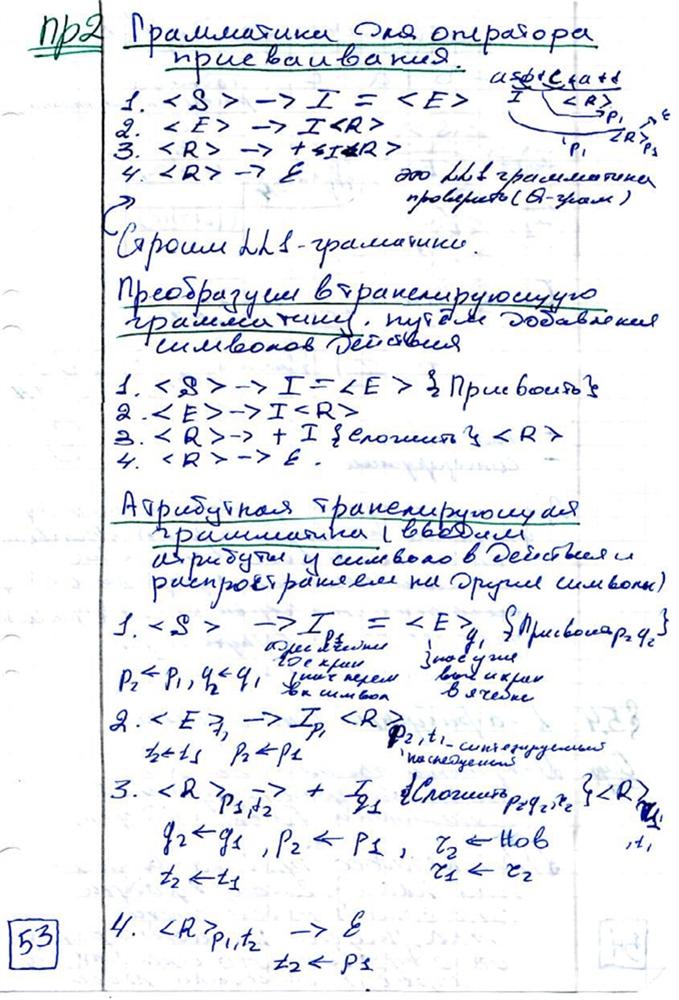 Пр2 Грамматика для оператора
присваивания.
1. <S> —> I = <E>
2. <E> —> I<R>
3. <R> —> + I<R>
4. <R> —> ε
I <R>
P1 <R> P1
это LL1 грамматика
проверить (Q-грам)
Строим LL1-граматики.
Преобразуем в транслирующую
грамматику, путём добавления
символов действия
1. <S> —> I = <E> {Присвоить}
2. <E> —> I<R>
3. <R> —> + I {Сложить} <R>
4. <R> —> ε.
Атрибутная транслирующая
грамматика (вводим
атрибуты у символов действия и
распространяем на другие символы)
1. <S> —> I p1 = <E> q1 {Присвоить p2 q2}
p2 ← p1, q2 ← q1
в ячейке
2. <E> t2 —> I p1 <R> p2, t1 - синтезируемый
наследуемый
t2 ← t1 p2 ← p1
3. <R> p1, t2 —> + I q1 {Сложить p2 q2, r2} <R> r1, t1
q2 ← q1, p2 ← p1, r2 ← Нов
t2 ← t1 r1 ← r2
4. <R> p1, t2 —> ε
t2 ← p1
53